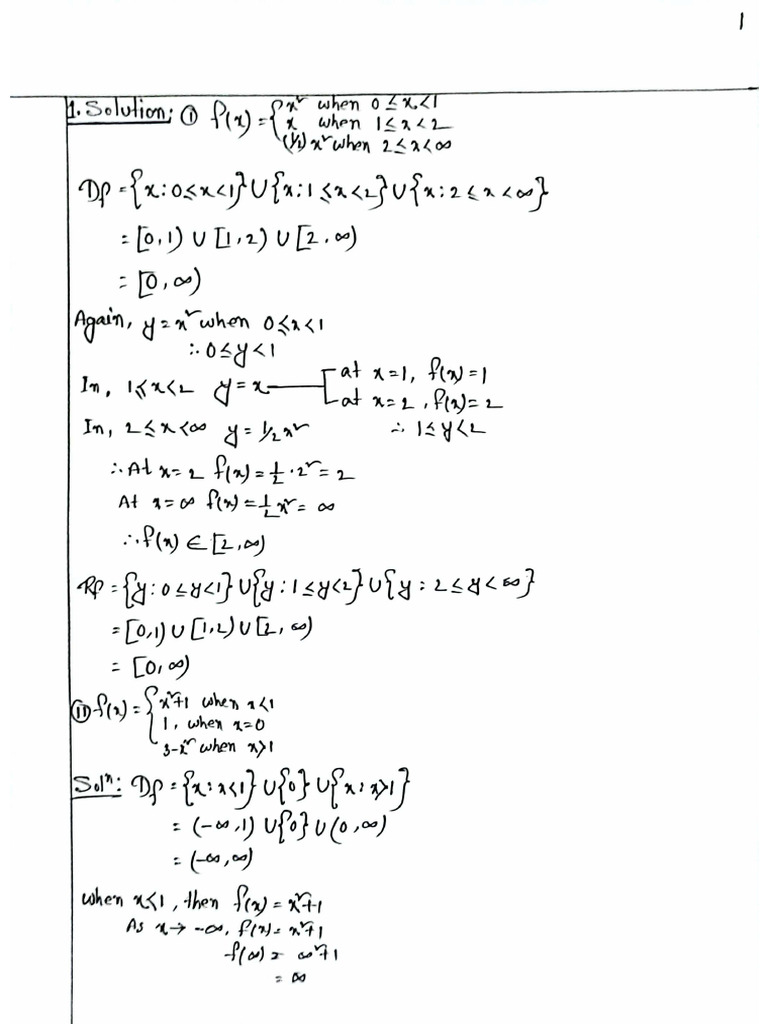 1
1. Solution: ① f(x) = { x² when 0 ≤ x < 1
x when 1 ≤ x < 2
(1/2) x² when 2 ≤ x < ∞
Df = {x : 0 ≤ x < 1} ∪ {x : 1 ≤ x < 2} ∪ {x : 2 ≤ x < ∞}
= [0, 1) ∪ [1, 2) ∪ [2, ∞)
= [0, ∞)
Again, y = x² when 0 ≤ x < 1
∴ 0 ≤ y < 1
In, 1 ≤ x < 2 y = x at x = 1, f(x) = 1
at x = 2, f(x) = 2
In, 2 ≤ x < ∞ y = 1/2 x² ∴ 1 ≤ y < 2
∴ At x = 2 f(x) = 1/2 · 2² = 2
At x = ∞ f(x) = 1/2 x² = ∞
∴ f(x) ∈ [2, ∞)
Rf = {y : 0 ≤ y < 1} ∪ {y : 1 ≤ y < 2} ∪ {y : 2 ≤ y < ∞}
= [0, 1) ∪ [1, 2) ∪ [2, ∞)
= [0, ∞)
⑪ f(x) = { x²+1 when x < 1
1, when x = 0
3-x² when x > 1
Solⁿ: Df = {x : x < 1} ∪ {0} ∪ {x : x > 1}
= (-∞, 1) ∪ {0} ∪ (0, ∞)
= (-∞, ∞)
when x < 1, then f(x) = x²+1
As x → -∞, f(x) = x²+1
f(∞) = ∞²+1
= ∞